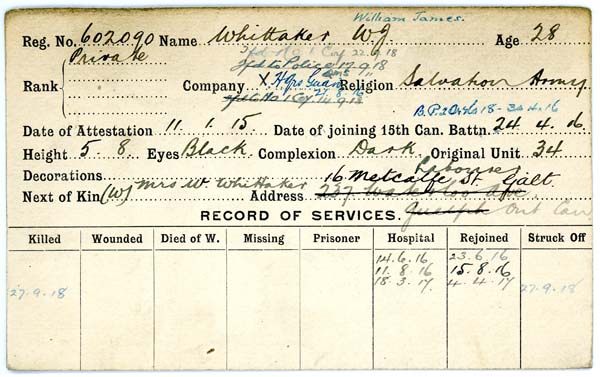 William James.
Reg. No. 602090 Name Whittaker W.J. Age 28
Private
Tfd to Police 17.9.18
Rank Company Religion Salvation Army
Date of Attestation 11 1. 15 Date of joining 15th Can. Battn. 24 4. 16
Height 5 8. Eyes Black. Complexion Dark. Original Unit 34
Decorations 16 Metcalfe St. Galt
Next of Kin (W) Mrs W. Whittaker Address 237 Waterloo Ave
RECORD OF SERVICES. Guelph Ont Can
Killed Wounded Died of W. Missing Prisoner Hospital Rejoined Struck Off
14.6.16 23.6.16
11.8.16 15.8.16
27-9-18 18.3.17. 4-4-17 27-9-18